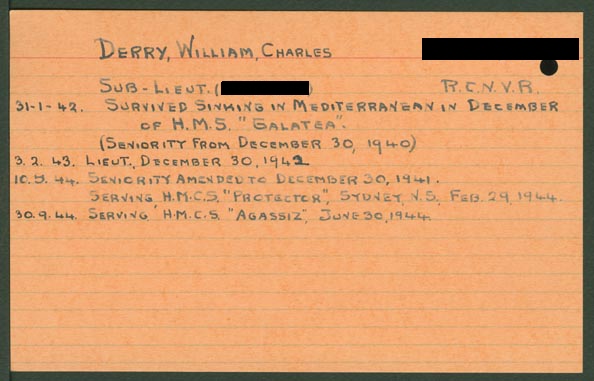 DERRY, WILLIAM, CHARLES
SUB-LIEUT. ( ) R.C.N.V.R.
31-1-42. SURVIVED SINKING IN MEDITERRANEAN IN DECEMBER
OF H.M.S. "GALATEA".
(SENIORITY FROM DECEMBER 30, 1940)
3.2.43. LIEUT., DECEMBER 30, 1942
10.5.44. SENIORITY AMENDED TO DECEMBER 30, 1941.
SERVING H.M.C.S. "PROTECTOR", SYDNEY, N.S. FEB. 29, 1944.
30.9.44. SERVING H.M.C.S. "AGASSIZ", JUNE 30, 1944.